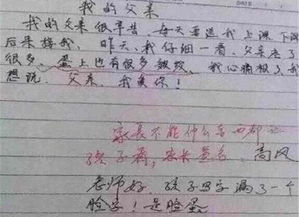 我的父亲
我的父亲很辛苦,每天要送我上课下课
后来接我。昨天,我仔细一看,父亲老了
很多,蛋上也有很多皱纹,我心痛极了我
想说,父亲,我爱你!
家长不能什么字也都
孩子看,家长签名,高风
老师好,孩子只字漏了一个
脸字!是脸蛋